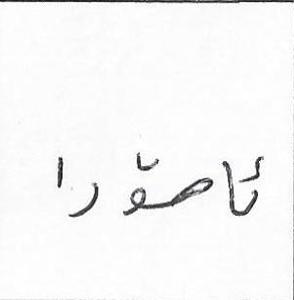 ئاھۆرا